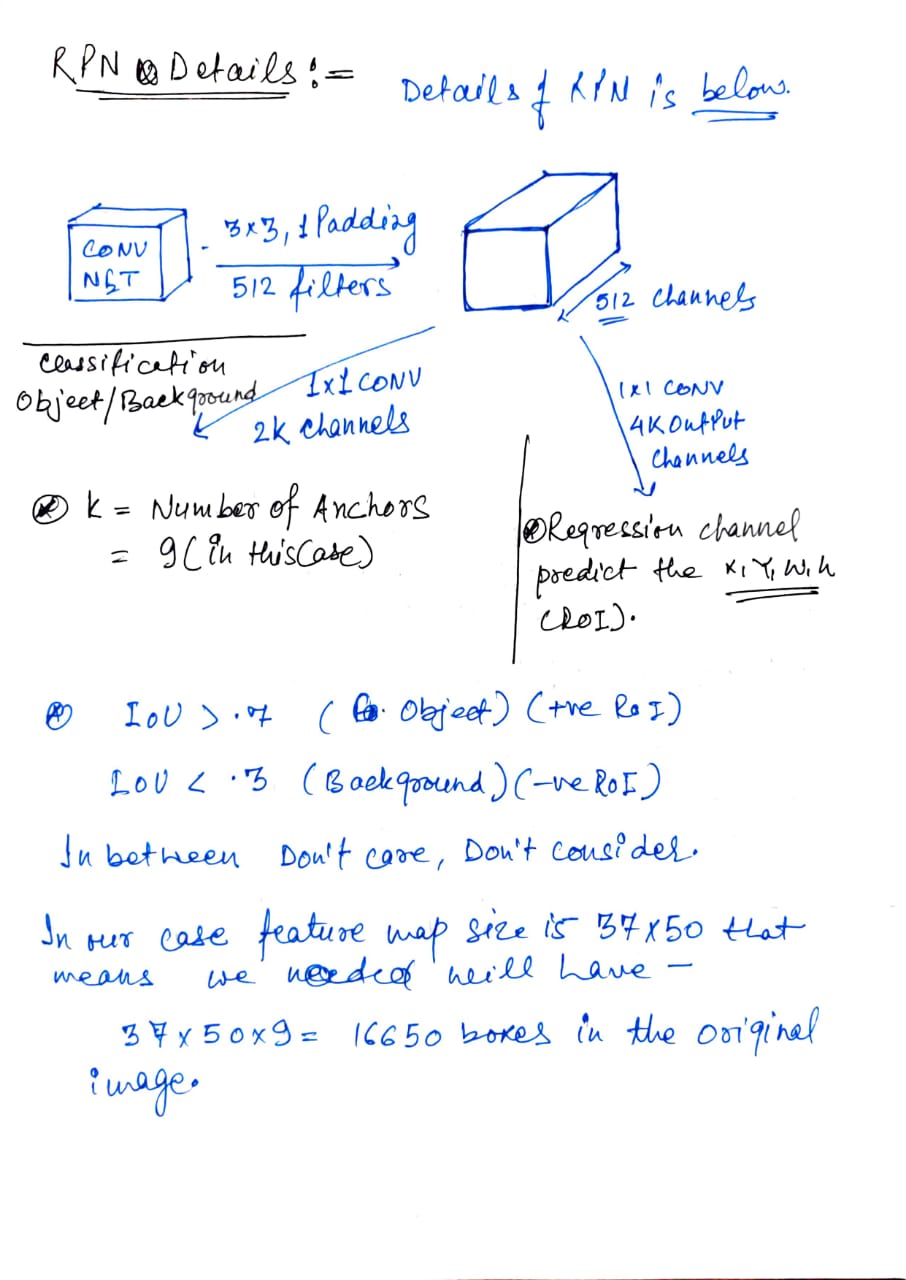 RPN Details :=
Details of RPN is below.
CONV
NET
3x3, 1 Padding
512 filters
512 channels
Classification
Object/Background
1x1 CONV
2K channels
1x1 CONV
4K Output
Channels
K = Number of Anchors
= 9 (in this Case)
Regression channel
predict the x, Y, W, h
(RoI).
IoU > .7 (Object) (+ve RoI)
IoU < .3 (Background) (-ve RoI)
In between Don't care, Don't consider.
In our case feature map size is 37x50 that
means we will have -
37x50x9 = 16650 boxes in the original
image.